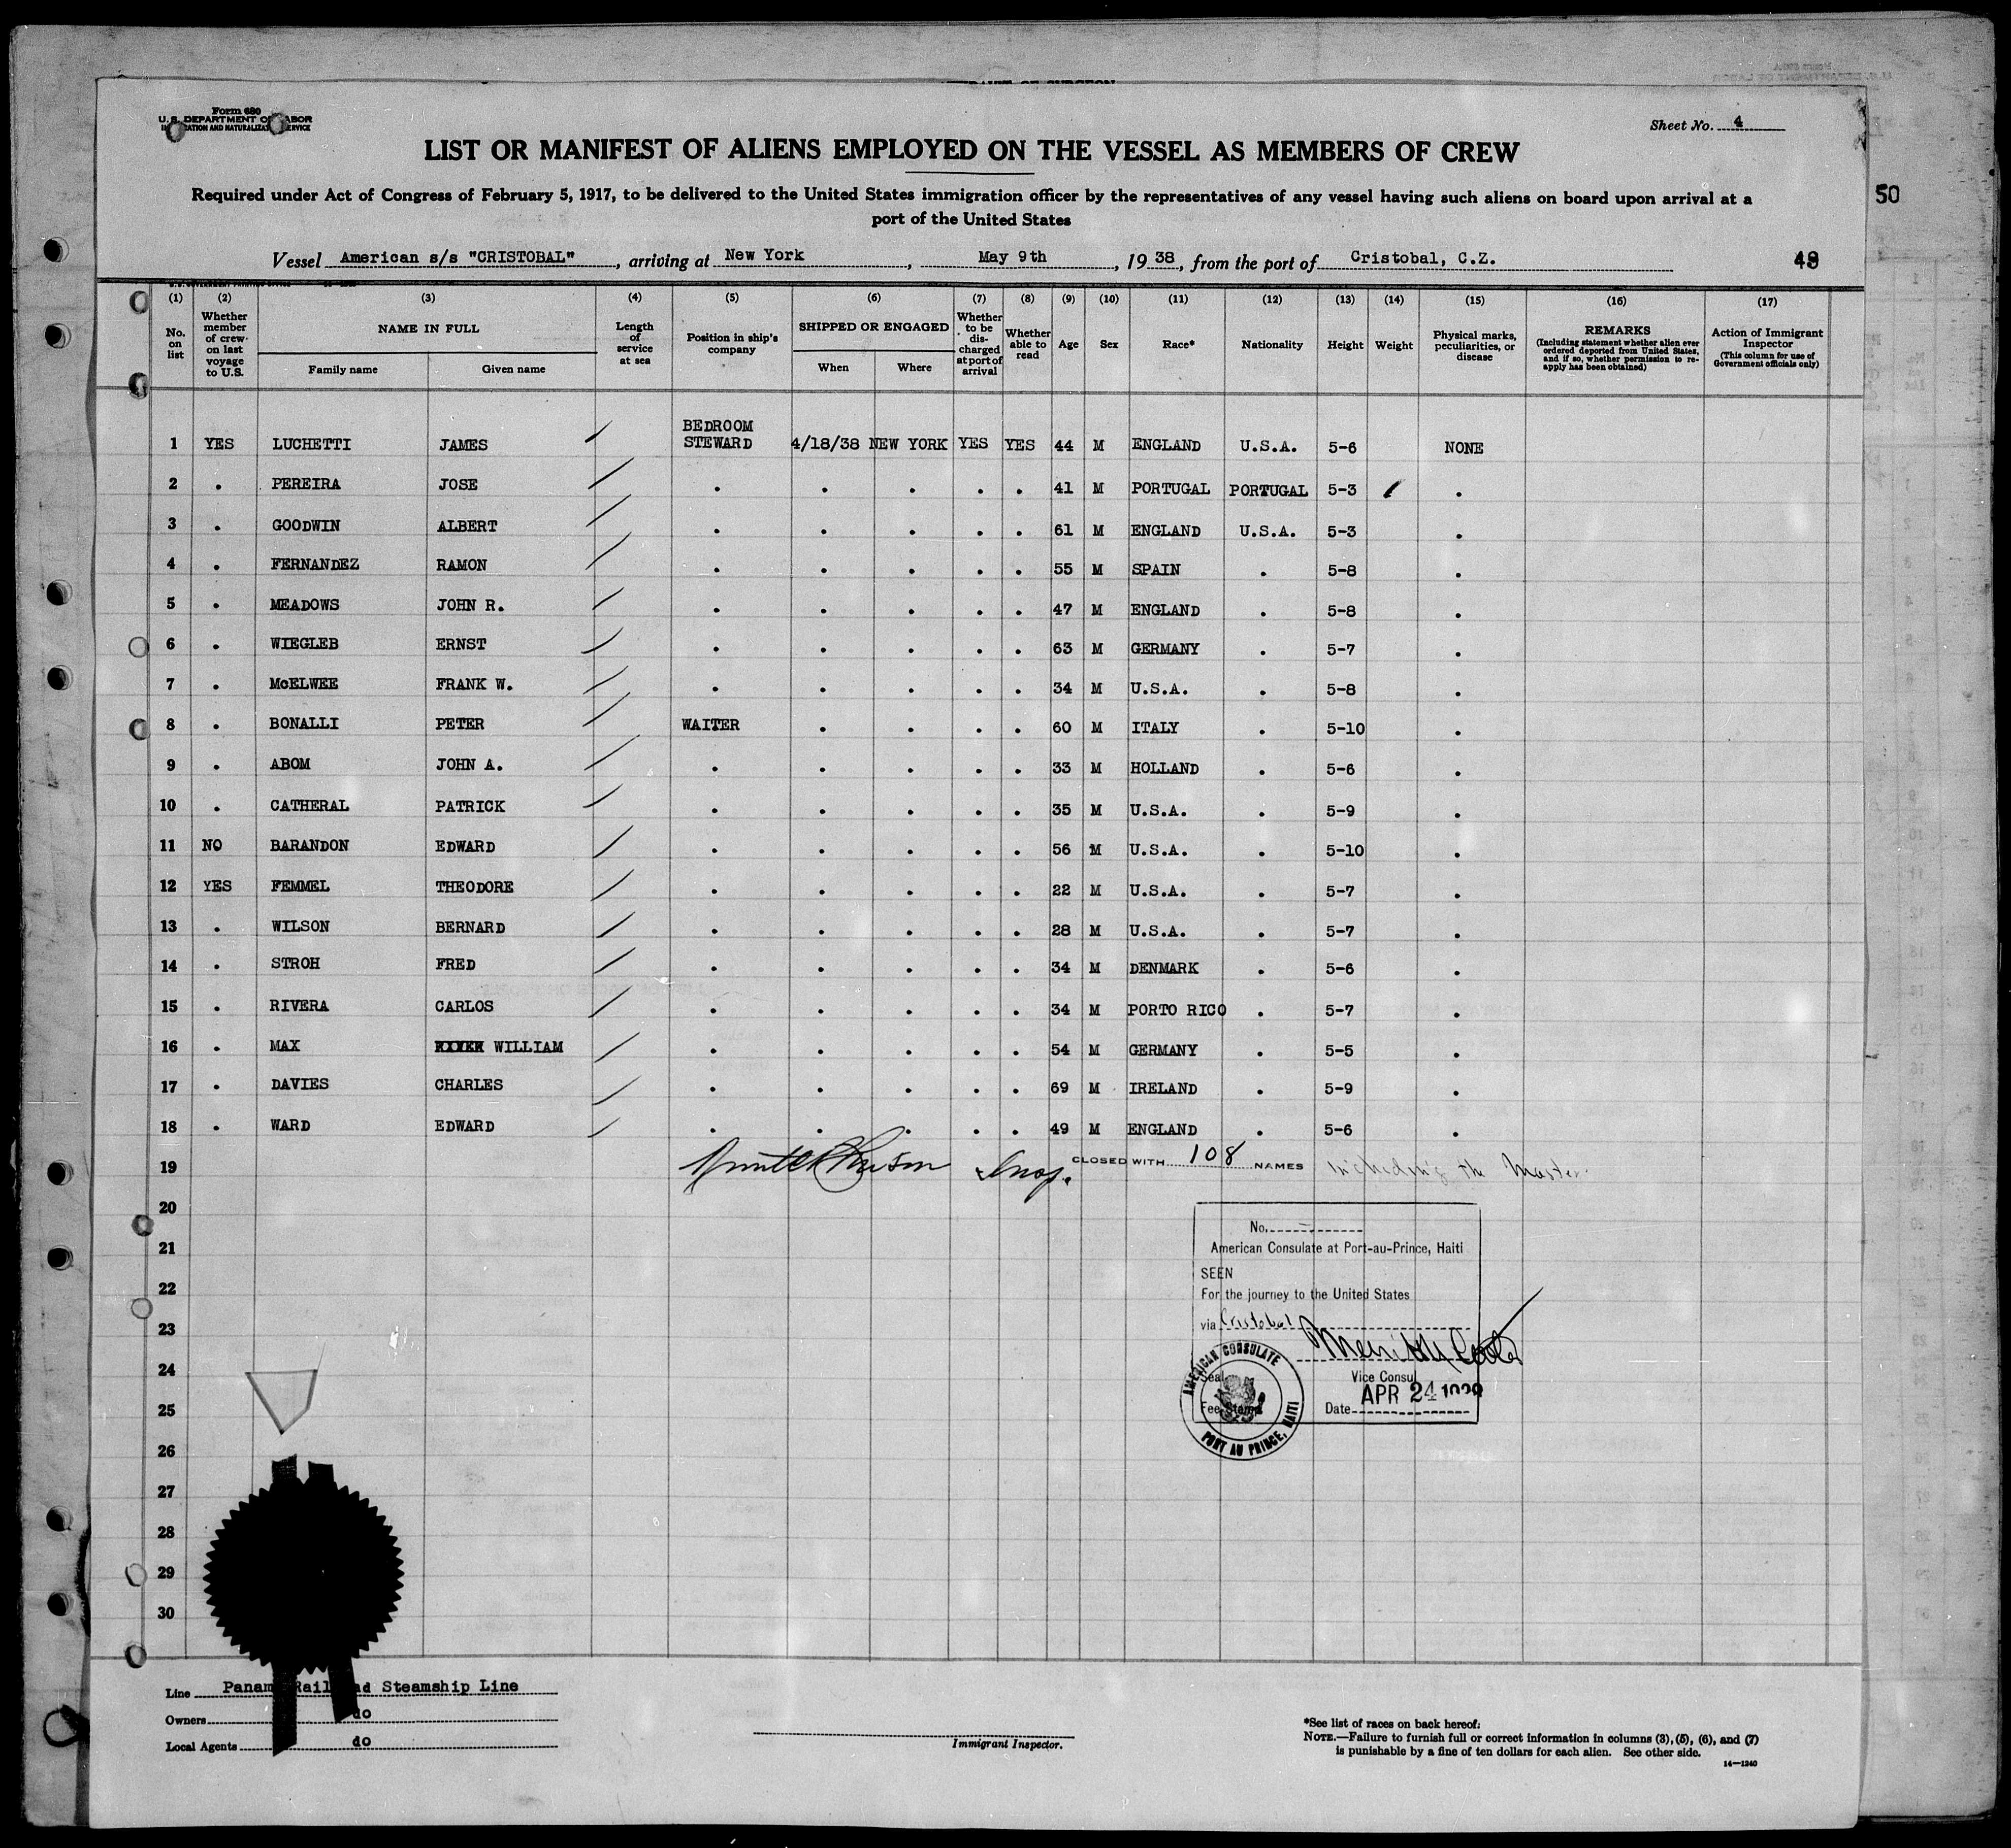 Form 680
U.S. DEPARTMENT OF LABOR
Sheet No. 4
LIST OR MANIFEST OF ALIENS EMPLOYED ON THE VESSEL AS MEMBERS OF CREW
Required under Act of Congress of February 5, 1917, to be delivered to the United States immigration officer by the representatives of any vessel having such aliens on board upon arrival at a
port of the United States
50
Vessel American s/s "CRISTOBAL", arriving at New York, May 9th, 1938, from the port of Cristobal, C.Z.
(1) (2) (3) (4) (5) (6) (7) (8) (9) (10) (11) (12) (13) (14) (15) (16) (17)
No. on list
Whether member of crew on last voyage to U.S.
NAME IN FULL
Family name Given name
Length of service at sea
Position in ship's company
SHIPPED OR ENGAGED
When Where
Whether to be discharged at port of arrival
Whether able to read
Age Sex Race* Nationality Height Weight
Physical marks, peculiarities, or disease
REMARKS
(Including statement whether alien ever ordered deported from United States, and if so, whether permission to re-apply has been obtained)
Action of Immigrant Inspector
(This column for use of Government officials only)
1 YES LUCHETTI JAMES BEDROOM STEWARD 4/18/38 NEW YORK YES YES 44 M ENGLAND U.S.A. 5-6 NONE
2 . PEREIRA JOSE . . . . . 41 M PORTUGAL PORTUGAL 5-3 .
3 . GOODWIN ALBERT . . . . . 61 M ENGLAND U.S.A. 5-3 .
4 . FERNANDEZ RAMON . . . . . 55 M SPAIN . 5-8 .
5 . MEADOWS JOHN R. . . . . . 47 M ENGLAND . 5-8 .
6 . WIEGLEB ERNST . . . . . 63 M GERMANY . 5-7 .
7 . McELWEE FRANK W. . . . . . 34 M U.S.A. . 5-8 .
8 . BONALLI PETER WAITER . . . . 60 M ITALY . 5-10 .
9 . ABOM JOHN A. . . . . . 33 M HOLLAND . 5-6 .
10 . CATHERAL PATRICK . . . . . 35 M U.S.A. . 5-9 .
11 NO BARANDON EDWARD . . . . . 56 M U.S.A. . 5-10 .
12 YES FEMMEL THEODORE . . . . . 22 M U.S.A. . 5-7 .
13 . WILSON BERNARD . . . . . 28 M U.S.A. . 5-7 .
14 . STROH FRED . . . . . 34 M DENMARK . 5-6 .
15 . RIVERA CARLOS . . . . . 34 M PORTO RICO . 5-7 .
16 . MAX WILLIAM . . . . . 54 M GERMANY . 5-5 .
17 . DAVIES CHARLES . . . . . 69 M IRELAND . 5-9 .
18 . WARD EDWARD . . . . . 49 M ENGLAND . 5-6 .
19 Insp. CLOSED WITH 108 NAMES including the Master
20
21
22
23
24
25
26
27
28
29
30
No.
American Consulate at Port-au-Prince, Haiti
SEEN
For the journey to the United States
via Cristobal
Vice Consul
Seal
Fee Stamp
Date APR 24
AMERICAN CONSULATE
PORT AU PRINCE, HAITI
Line Panama Railroad Steamship Line
Owners do
Local Agents do
Immigrant Inspector.
*See list of races on back hereof.
NOTE.—Failure to furnish full or correct information in columns (3), (5), (6), and (7)
is punishable by a fine of ten dollars for each alien. See other side.
14—1240